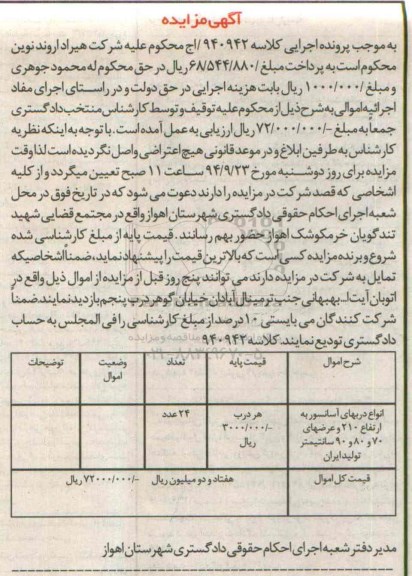 آگهی مزایده
به موجب پرونده اجرایی کلاسه ۹۴۰۹۴۲/اج محکوم علیه شرکت هیراد اروند نوین
محکوم است به پرداخت مبلغ ۶۸/۵۴۴/۸۸۰/ ریال در حق محکوم له محمود جوهری
و مبلغ ۱۰۰۰/۰۰۰/ ریال بابت هزینه اجرایی در حق دولت و در راستای اجرای مفاد
اجرائیه اموالی به شرح ذیل از محکوم علیه توقیف و توسط کارشناس منتخب دادگستری
جمعاً به مبلغ -/۷۲/۰۰۰/۰۰۰ ریال ارزیابی به عمل آمده است. با توجه به اینکه نظریه
کارشناس به طرفین ابلاغ و در موعد قانونی هیچ اعتراضی واصل نگردیده است لذا وقت
مزایده برای روز دوشنبه مورخ ۹۴/۹/۲۳ ساعت ۱۱ صبح تعیین میگردد و از کلیه
اشخاصی که قصد شرکت در مزایده را دارند دعوت می شود که در تاریخ فوق در محل
شعبه اجرای احکام حقوقی دادگستری شهرستان اهواز واقع در مجتمع قضایی شهید
تندگویان خرمکوشک اهواز حضور بهم رسانند. قیمت پایه از مبلغ کارشناسی شده
شروع و برنده مزایده کسی است که بالاترین قیمت را پیشنهاد نماید، ضمناً اشخاصیکه
تمایل به شرکت در مزایده دارند می توانند پنج روز قبل از مزایده از اموال ذیل واقع در
اتوبان آیت ا... بهبهانی جنب ترمینال آبادان خیابان گوهر درب پنجم بازدید نمایند ضمناً
شرکت کنندگان می بایستی ۱۰ درصد از مبلغ کارشناسی را فی المجلس به حساب
دادگستری تودیع نمایند. کلاسه ۹۴۰۹۴۲
شرح اموال قیمت پایه تعداد وضعیت اموال توضیحات
انواع دربهای آسانسور به ارتفاع ۲۱۰ و عرضهای ۷۰ و ۸۰ و ۹۰ سانتیمتر تولید ایران هر درب -/۳۰۰۰/۰۰۰ ریال ۲۴ عدد
قیمت کل اموال هفتاد و دو میلیون ریال -/۷۲۰۰۰/۰۰۰ ریال
مدیر دفتر شعبه اجرای احکام حقوقی دادگستری شهرستان اهواز